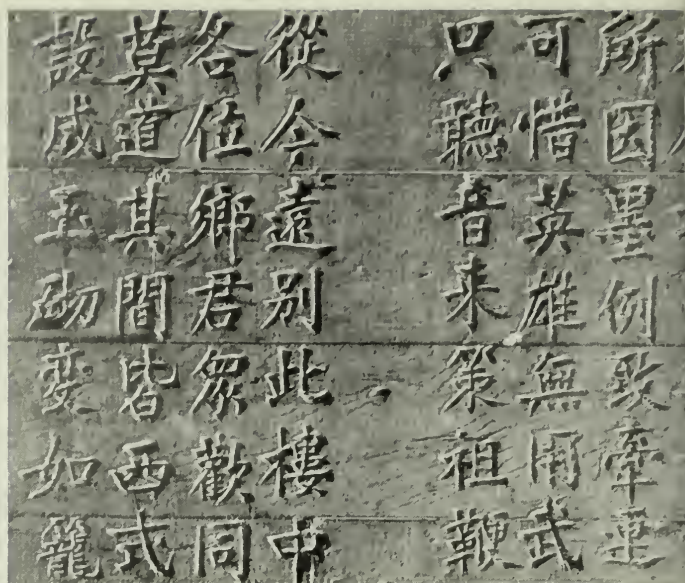 所因墨例致牽連
可惜英雄無用武
只聽音来策祖鞭
從今遠別此樓中
各位鄉君眾歡同
莫道其間皆西式
設成玉砌變如籠